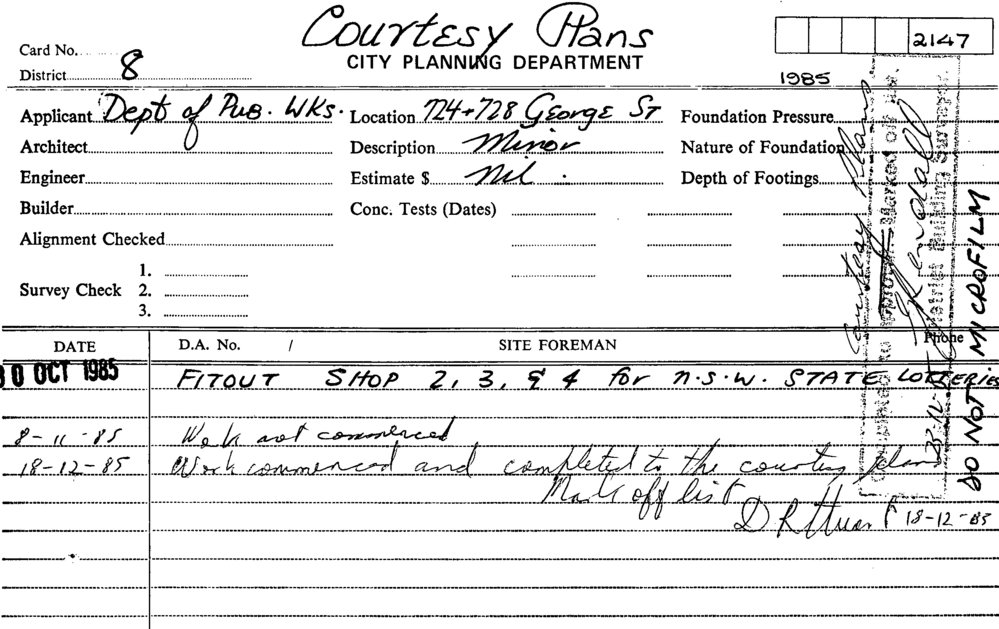 Courtesy Plans
CITY PLANNING DEPARTMENT
2147
1985
Card No.
District 8
Applicant Dept of Pub. Wks. Location 724+728 George St Foundation Pressure
Architect Description Minor Nature of Foundation
Engineer Estimate $ Nil. Depth of Footings
Builder Conc. Tests (Dates)
Alignment Checked
Survey Check 1.
2.
3.
DATE D.A. No. / SITE FOREMAN Phone
30 OCT 1985 FITOUT SHOP 2, 3, & 4 for N.S.W. STATE LOTTERIES
8-11-85 Work not commenced
18-12-85 Work commenced and completed to the courtesy plans
Mark off list
18-12-85
Courtesy Plans
Completed to approval Marked off list.
District Building Surveyor.
DO NOT MICROFILM